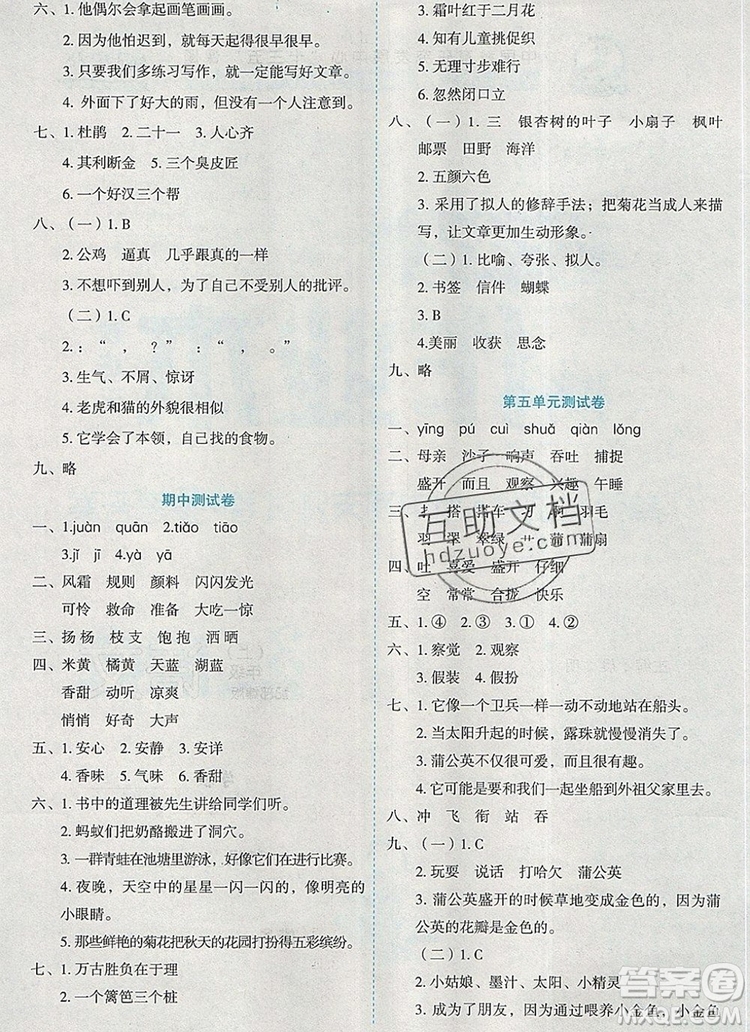 六、1. 他偶尔会拿起画笔画画。
2. 因为他怕迟到，就每天起得很早很早。
3. 只要我们多练习写作，就能写好文章。
4. 外面下了好大的雨，但没有一个人注意到。
七、1. 杜鹃 2. 二十一 3. 人心齐
4. 其利断金 5. 三个臭皮匠
6. 一个好汉三个帮
八、（一）1. B
2. 公鸡 逼真 几乎跟真的一样
3. 不想吓到别人，为了自己不受别人的批评。
（二）1. C
2. ：“ ，？ ” ：“ ， 。”
3. 生气、不屑、惊讶
4. 老虎和猫的外貌很相似
5. 它学会了本领，就去找自己的食物。
九、略
期中测试卷
一、1.juàn quān 2.tiǎo tiāo
3.jǐ jī 4.yà yā
二、风霜 规则 颜料 闪闪发光
可怜 救命 准备 大吃一惊
三、扬 杨 枝 支 饱 抱 洒 晒
四、米黄 橘黄 天蓝 湖蓝
香甜 动听 凉爽
悄悄 好奇 大声
五、1. 安心 2. 安静 3. 安详
4. 香味 5. 气味 6. 香甜
六、1. 书中的道理被先生讲给同学们听。
2. 蚂蚁们把奶酪搬进了洞穴。
3. 一群青蛙在池塘里游泳，好像它们在进行比赛。
4. 夜晚，天空中的星星一闪一闪的，真像明亮的
小眼睛。
5. 那些鲜艳的菊花把秋天的花园打扮得五彩缤纷。
七、1. 万古胜负在于理
2. 一个篱笆三个桩
3. 霜叶红于二月花
4. 知有儿童挑促织
5. 无理寸步难行
6. 忽然闭口立
八、（一）1. 三 银杏树的叶子 小扇子 枫叶
邮票 田野 海洋
2. 五颜六色
3. 采用了拟人的修辞手法；把菊花当成人来描
写，让文章更加生动形象。
（二）1. 比喻、夸张、拟人。
2. 书签 信件 蝴蝶
3. B
4.美丽 收获 思念
九、略
第五单元测试卷
一、yīng pú cuì shuǎ qiàn lǒng
二、母亲 沙子 响声 吞吐 捕捉
盛开 而且 观察 有趣 午睡
三、扌 搭 搭车 羽毛
羽 翠 翠绿 艹 蒲 蒲扇
四、吐 喜爱 盛开 仔细
空 常常 合拢 快乐
五、1. ④ 2. ① 3. ② 4. ③
六、1. 察觉 2. 观察
3. 假装 4. 假扮
七、1. 它像一个卫兵一样一动不动地站在船头。
2. 当太阳升起的时候，露珠就慢慢消失了。
3. 蒲公英不仅可以欣赏，还很好玩。
4. 我更愿意和我们一起坐船到外祖父家里去。
八、冲 飞 衔 站 吞
九、（一）1. C
2. 玩耍 说话 打哈欠 蒲公英
3. 蒲公英盛开的时候草地变成金色的。因为蒲
公英的花瓣是金色的。
（二）1. C
2. 小姑娘、墨汁、太阳、小精灵
3. 成为了朋友，因为通过喂养小金鱼，小金鱼
互助文档
hdzuoye.com
答案圈
MXQE.COM